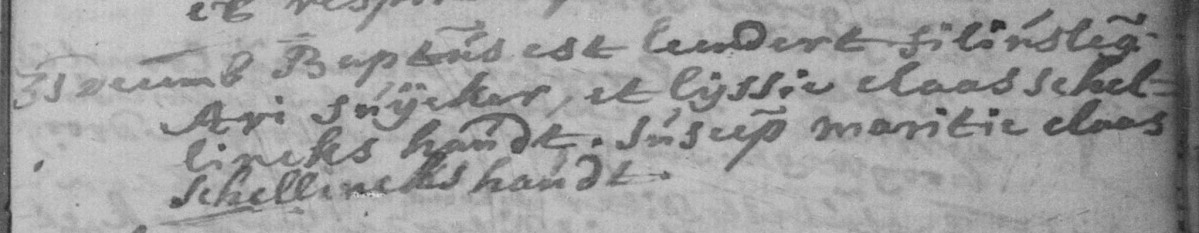 et respo
31 decemb Baptus est leendert filius leg.
Ari suÿcker, et lÿssie claas schel-
lincks haudt. suscep maritie claas
schellinckshaudt.